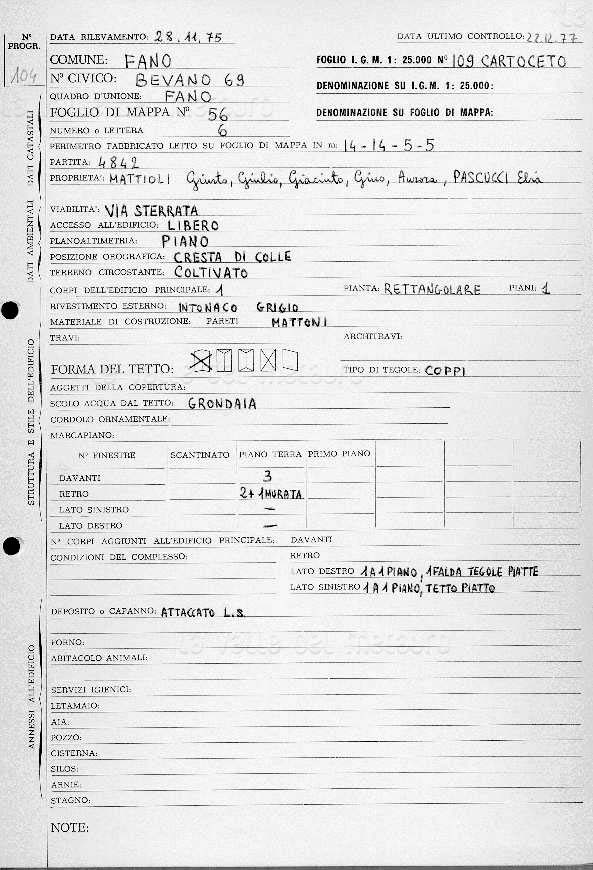 Nº PROGR. 104
DATA RILEVAMENTO: 28.11.75 DATA ULTIMO CONTROLLO: 22.12.77
COMUNE: FANO FOGLIO I.G.M. 1: 25.000 Nº 109 CARTOCETO
Nº CIVICO: BEVANO 69 DENOMINAZIONE SU I.G.M. 1: 25.000:
QUADRO D'UNIONE: FANO
FOGLIO DI MAPPA Nº 56 DENOMINAZIONE SU FOGLIO DI MAPPA:
NUMERO o LETTERA 6
PERIMETRO FABBRICATO LETTO SU FOGLIO DI MAPPA IN m: 14-14-5-5
PARTITA: 4842
PROPRIETA': MATTIOLI Giusto, Giulio, Giacinto, Gino, Aurora, PASCUCCI Elia
DATI CATASTALI
VIABILITA': VIA STERRATA
ACCESSO ALL'EDIFICIO: LIBERO
PLANOALTIMETRIA: PIANO
POSIZIONE OROGRAFICA: CRESTA DI COLLE
TERRENO CIRCOSTANTE: COLTIVATO
DATI AMBIENTALI
CORPI DELL'EDIFICIO PRINCIPALE: 1 PIANTA: RETTANGOLARE PIANI: 1
RIVESTIMENTO ESTERNO: INTONACO GRIGIO
MATERIALE DI COSTRUZIONE: PARETI MATTONI
TRAVI: ARCHITRAVI:
FORMA DEL TETTO: TIPO DI TEGOLE: COPPI
AGGETTI DELLA COPERTURA:
SCOLO ACQUA DAL TETTO: GRONDAIA
CORDOLO ORNAMENTALE:
MARCAPIANO:
Nº FINESTRE SCANTINATO PIANO TERRA PRIMO PIANO
DAVANTI 3
RETRO 2+1 MURATA
LATO SINISTRO –
LATO DESTRO –
STRUTTURA E STILE DELL'EDIFICIO
Nº CORPI AGGIUNTI ALL'EDIFICIO PRINCIPALE: DAVANTI
CONDIZIONI DEL COMPLESSO: RETRO
LATO DESTRO 1 A 1 PIANO, 1 FALDA TEGOLE PIATTE
LATO SINISTRO 1 A 1 PIANO, TETTO PIATTO
DEPOSITO o CAPANNO: ATTACCATO L.S.
FORNO:
ABITACOLO ANIMALI:
SERVIZI IGIENICI:
LETAMAIO:
AIA:
POZZO:
CISTERNA:
SILOS:
ARNIE:
STAGNO:
ANNESSI ALL'EDIFICIO
NOTE:
Le Valli del Metauro